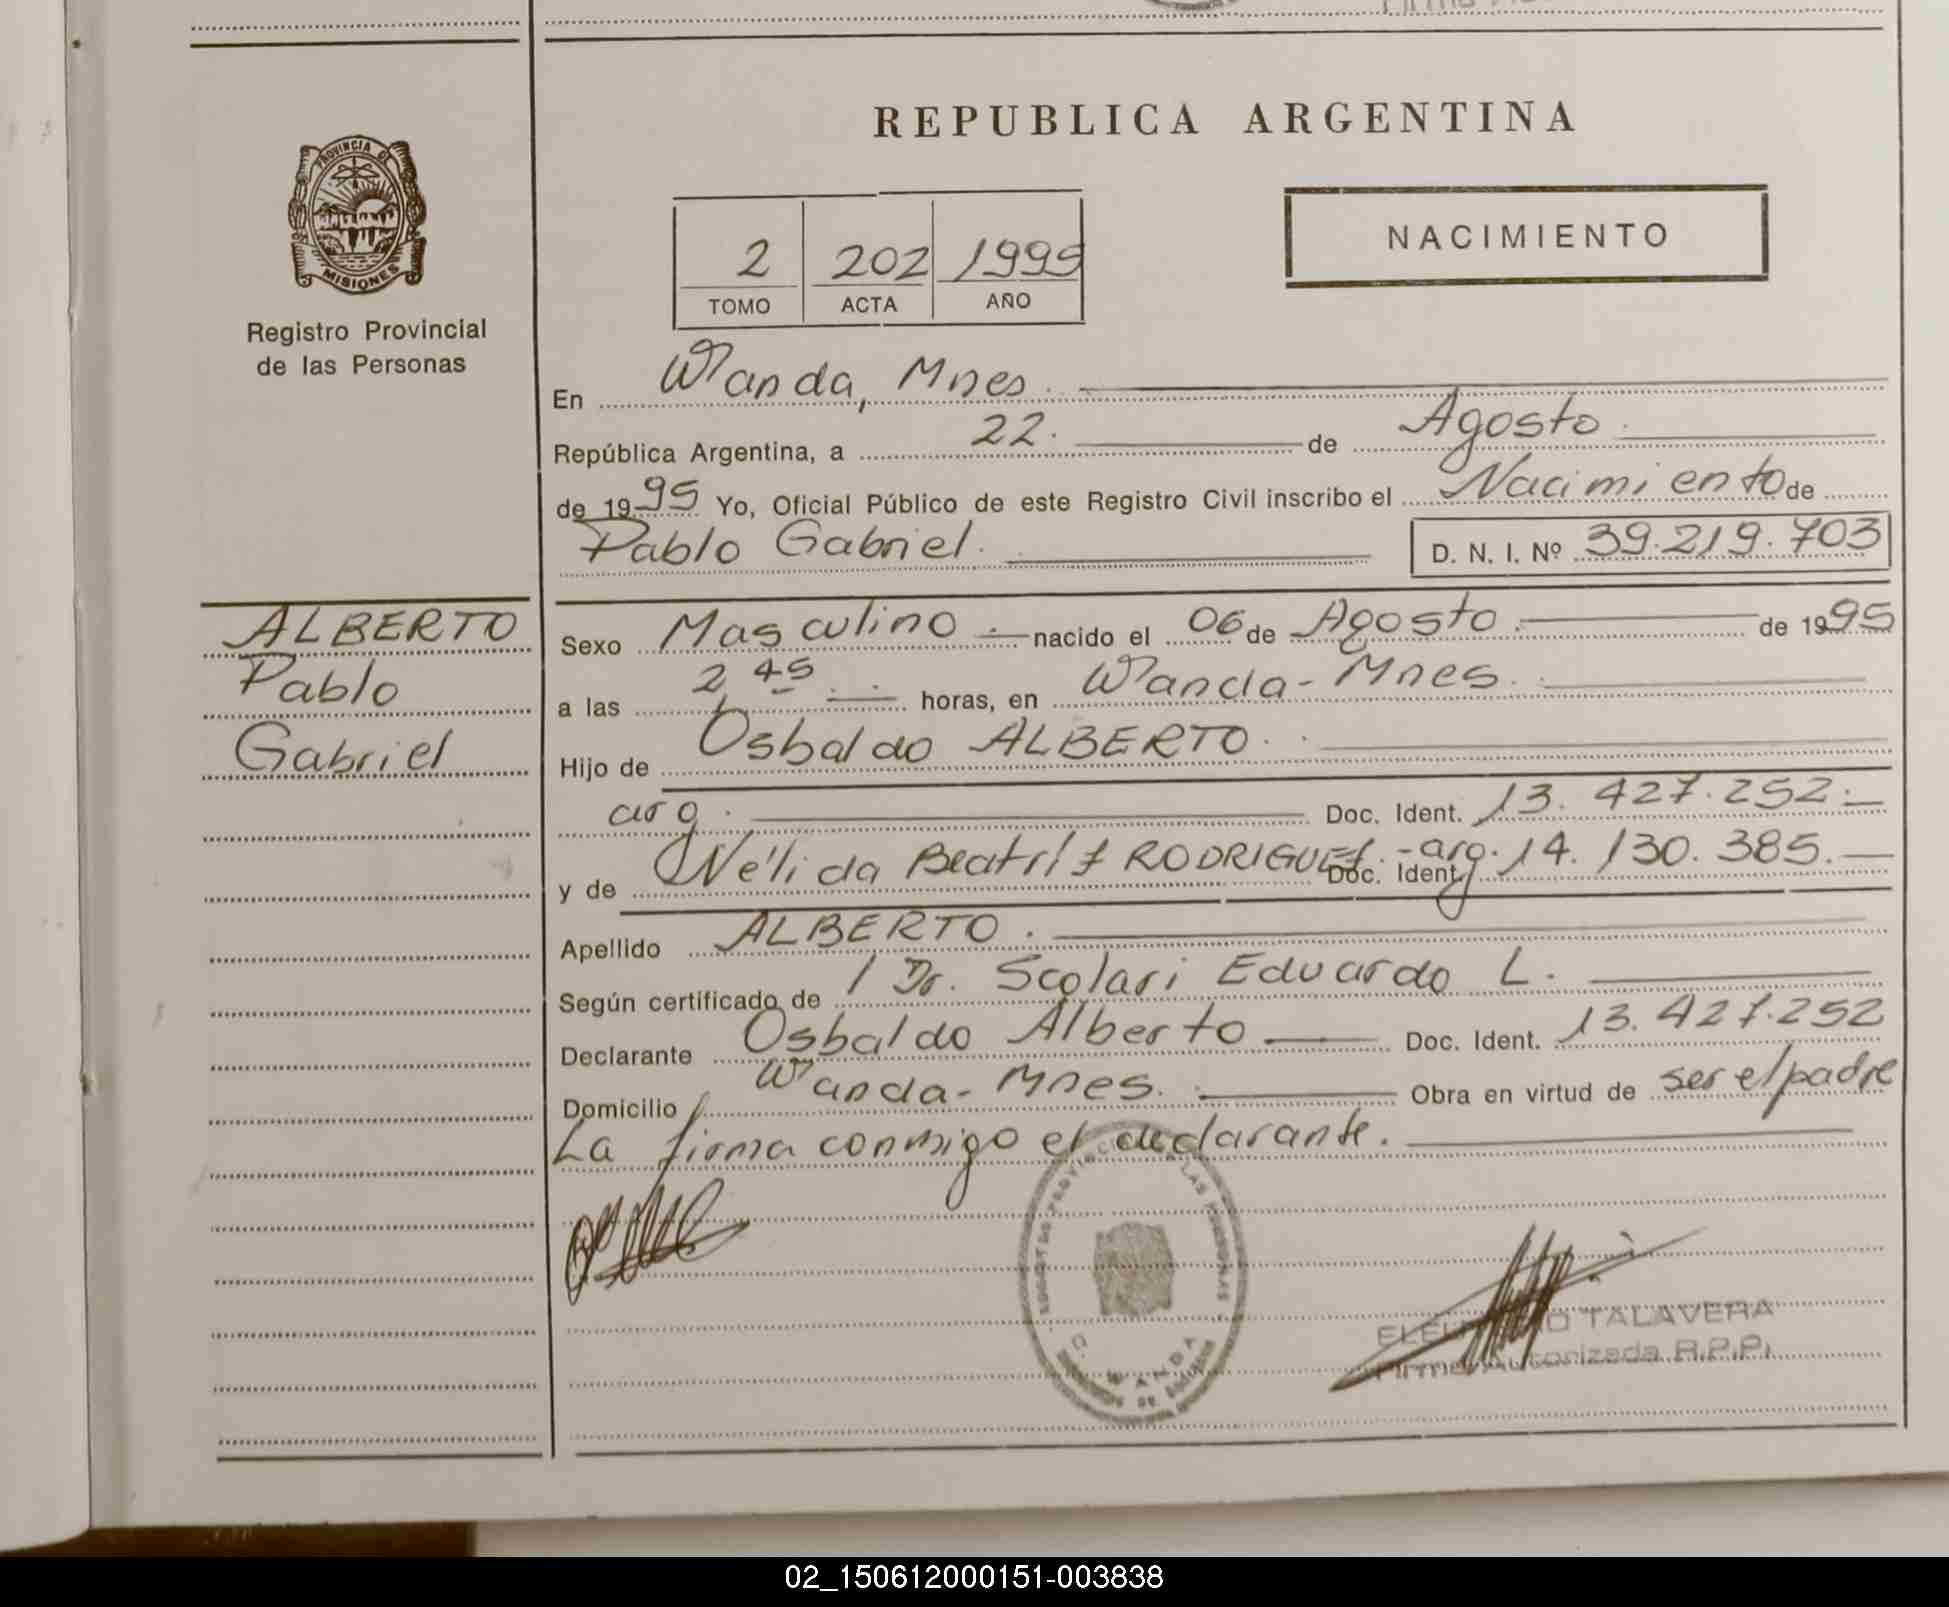 PROVINCIA DE
MISIONES
Registro Provincial
de las Personas
ALBERTO
Pablo
Gabriel
REPUBLICA ARGENTINA
2 202 1995
TOMO ACTA AÑO
NACIMIENTO
En Wanda, Mnes.
República Argentina, a 22. de Agosto.
de 1995 Yo, Oficial Público de este Registro Civil inscribo el Nacimiento de
Pablo Gabriel. D. N. I. Nº 39.219.703
Sexo Masculino. nacido el 06 de Agosto. de 1995
a las 2,45. horas, en Wanda-Mnes.
Hijo de Osbaldo ALBERTO.
arg. Doc. Ident. 13.427.252.
y de Nélida Beatriz RODRIGUEZ. -arg. Doc. Ident. 14.130.385.
Apellido ALBERTO.
Según certificado de / Dr. Scolari Eduardo L.
Declarante Osbaldo Alberto Doc. Ident. 13.427.252
Domicilio Wanda-Mnes. Obra en virtud de ser el padre
La firma conmigo el declarante.
WANDA
TALAVERA
Firma Autorizada R.P.P.
02_150612000151-003838